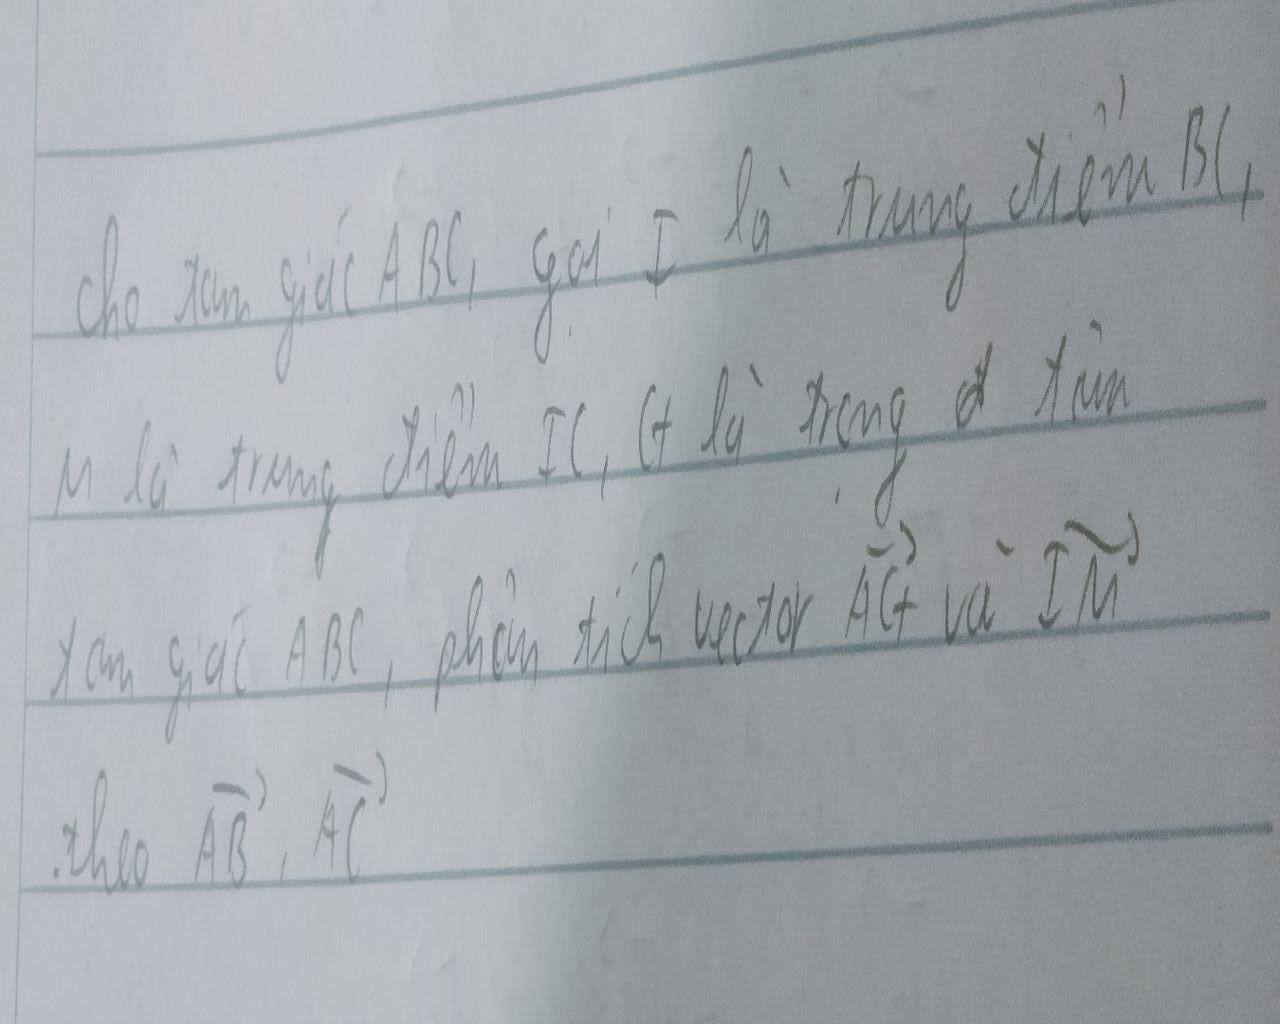 cho tam giác ABC, gọi I là trung điểm BC,
M là trung điểm IC, G là trọng tâm
tam giác ABC, phân tích vector AG và IM
theo AB, AC